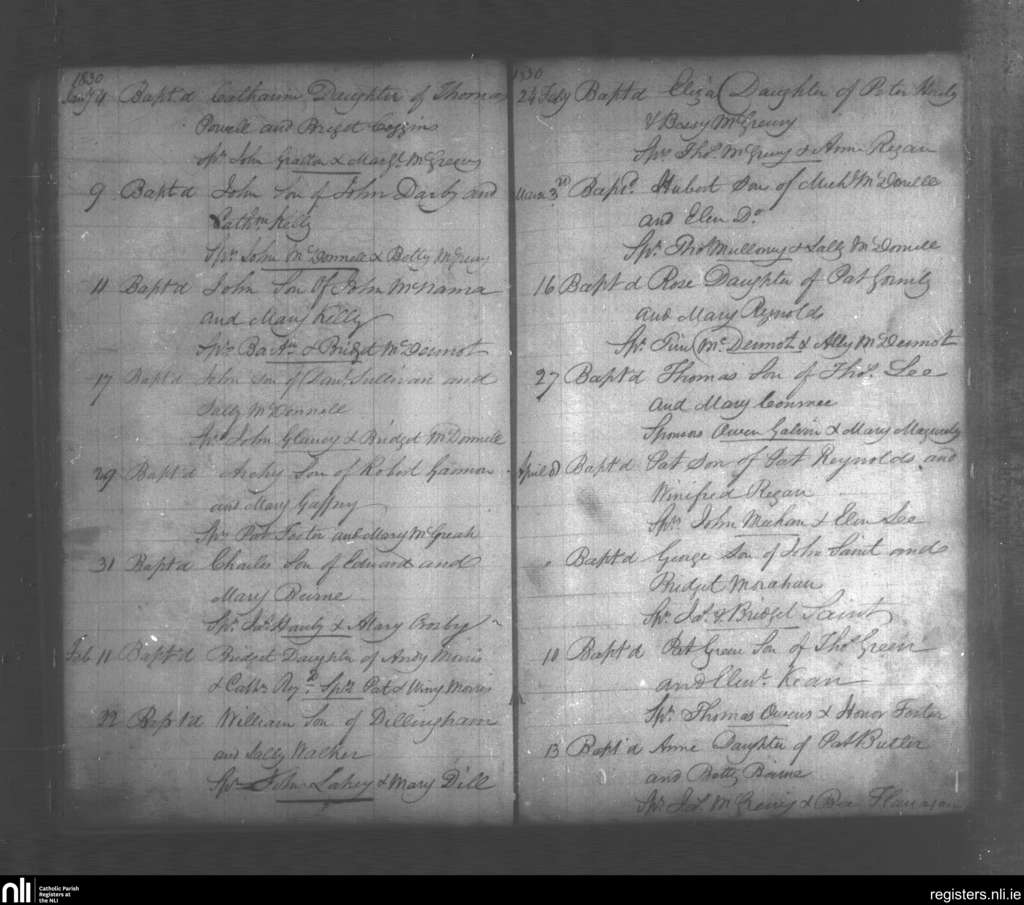 1830
Jany 4 Bapt'd Catharine Daughter of Thomas
Powell and Bridget Coggins
Sprs John Gracton & Margt. McGreevy
9 Bapt'd John Son of John Darby and
Cathn Kelly
Sprs John McDonnell & Betty McGreevy
11 Bapt'd John Son Of John McNama
and Mary Kelly
Sprs & Bridget McDermot
17 Bapt'd John Son of Danl. Sullivan and
Sally McDonnell
Sprs John Glancy & Bridget McDonnell
29 Bapt'd Archy Son of Robert Gannon
and Mary Gaffney
Sprs Pat Foster and Mary McGreah
31 Bapt'd Charles Son of Edward and
Mary Beirne
Sprs Jas. Hanly & Mary Crosby
Feb 11 Bapt'd Bridget Daughter of Andy Morris
& Cathn Sprs Pat & Winy Morris
22 Bapt'd William Son of Dillingham
and Sally Walker
Sprs John Lahey & Mary Dill
1830
24 Feby Bapt'd Eliza Daughter of Peter
& Bessy McGreevy
Sprs Thos. McGreevy & Anne Regan
March 3rd Bapt. Hubert Son of Michl. McDonell
and Elen Do.
Sprs Thos Mullowny & Sally McDonnell
16 Bapt'd Rose Daughter of Pat Gormly
and Mary Reynolds
Sprs Tim McDermot & Ally McDermot
27 Bapt'd Thomas Son of Thos. Lee
and Mary Conmee
Sponsors Owen Galvin & Mary
April Bapt'd Pat Son of Pat Reynolds and
Winifred Regan
Sprs John Meehan & Elen Lee
" Bapt'd George Son of John Saint and
Bridget Morahan
Sprs Jas. & Bridget Saint
10 Bapt'd Pat Green Son of Thos Green
and Elenr. Kean
Sprs Thomas Owens & Honor Foster
13 Bapt'd Anne Daughter of Pat Butler
and Betty Beirne
Sprs Jas. McGreevy & Bea Flanagan
nli
Catholic Parish
Registers at
the NLI
registers.nli.ie